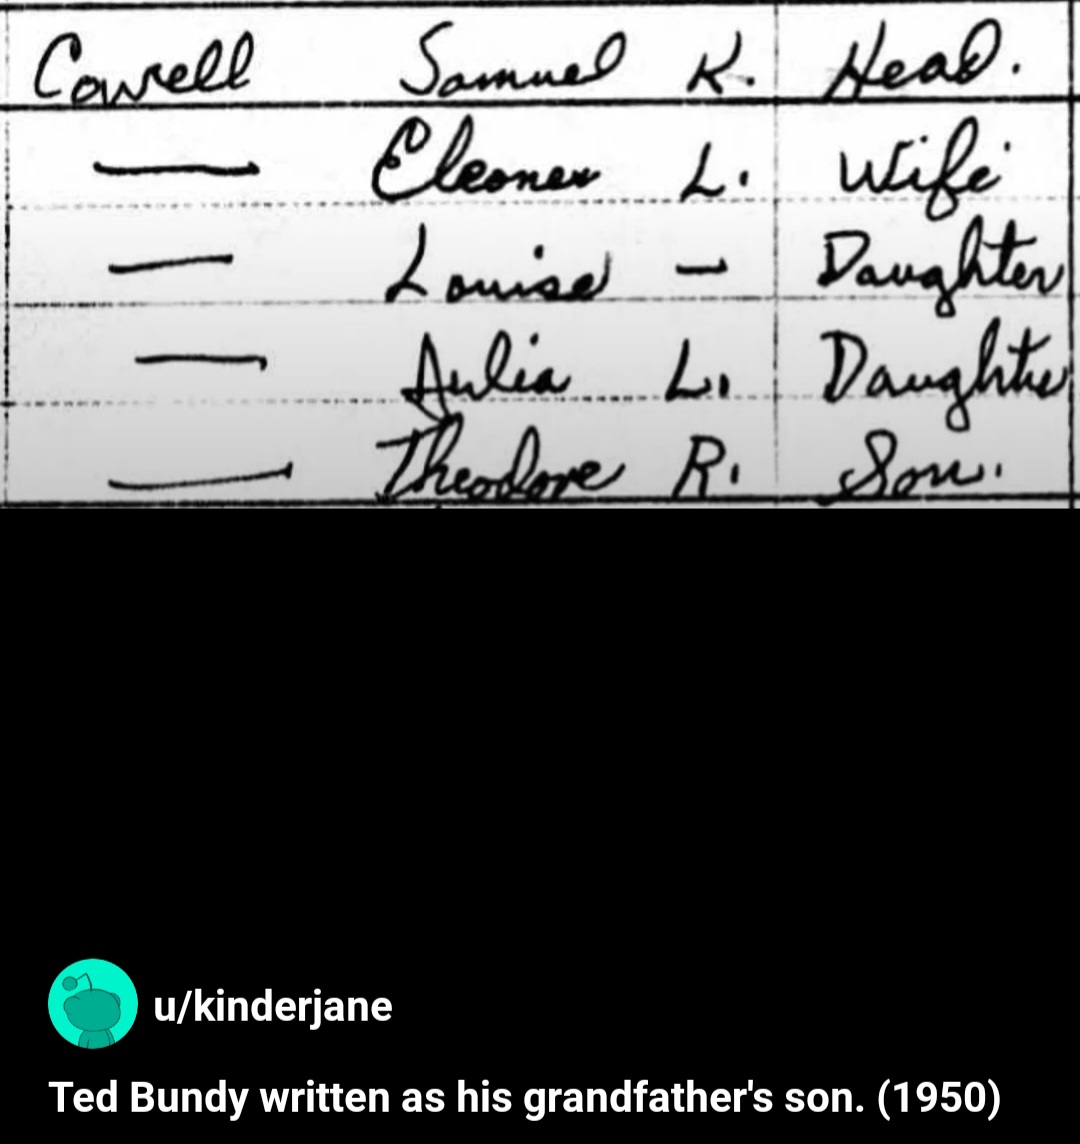 Cowell Samuel K. Head.
— Eleoner L. Wife
— Louise - Daughter
— Julia L. Daughter
— Theodore R. Son.
u/kinderjane
Ted Bundy written as his grandfather's son. (1950)